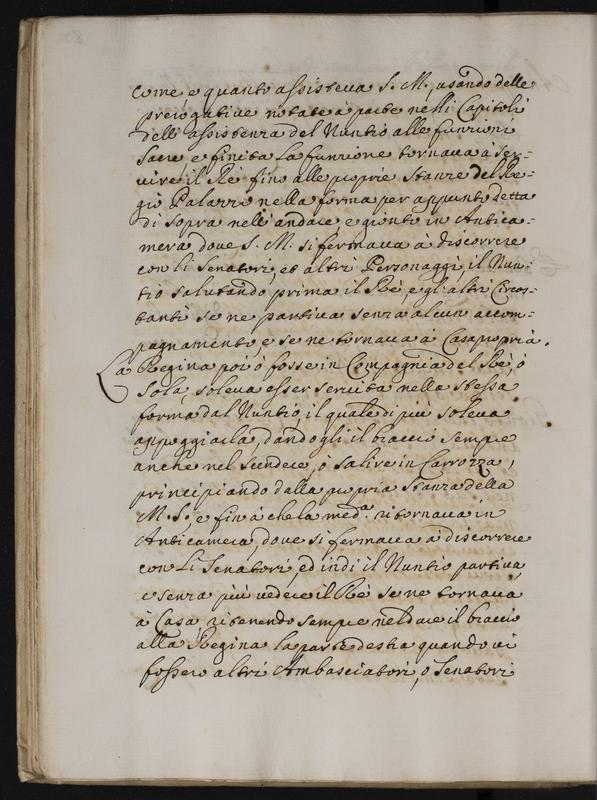 come e quanto assisteva S. M., usando delle
prerogative notate à parte nelli Capitoli
dell' assistenza del Nuntio alle funzioni
Sacre, e finita la funzione tornava à ser-
vire il Rè fino alle proprie stanze del Re-
gio Palazzo nella forma per appunto detta
di sopra nell' andare, e gionto in Antica-
mera dove S. M. si fermava à discorrere
con li Senatori, et altri Personaggi, il Nun-
tio salutando prima il Rè, e gl' altri Circos-
tanti se ne partiva senza alcun accom-
pagnamento, e se ne tornava à Casa propria.
La Regina poi ò fosse in Compagnia del Rè, ò
sola, soleva esser servita nella stessa
forma dal Nuntio, il quale di più soleva
appoggiarla, dandogli il braccio sempre
anche nel scendere, ò salire in Carrozza,
principiando dalla propria stanza della
M. S., e fin à che la med.a ritornava in
Anticamera, dove si fermava à discorrere
con li Senatori, ed indi il Nuntio partiva,
e senza più vedere il Rè se ne tornava
à Casa, ritenendo sempre nel dare il braccio
alla Regina la parte destra quando vi
fossero altri Ambasciatori, o Senatori